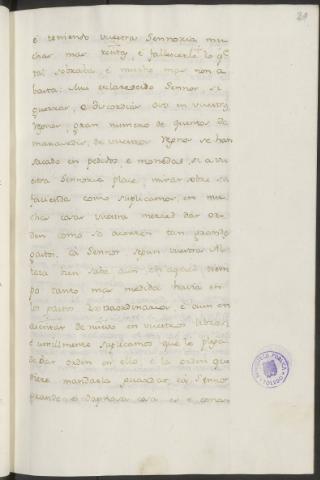 21
é teniendo vuestra Sennoria mu
chas mas rentas, é fallescerle lo qe
tal sobraba, é mucho mas non a
basta: Mui esclarescido Sennor, si
guerras, o discordias ovo en vuestros
Regnos, gran numero de quentos de
maravedis, de vuestros Regnos se han
sacado en pedidos, é monedas, si a vu
estra Sennoria place, mirar sobre su
facienda como suplicamos, en mu
chas cosas vuestra merced dar or
den como se acorten tan grandes
gastos, ca Sennor segun vuestra Al
teza bien sabe aun en aquel tiem
po tanto mas medida havia en
los gastos extraordinarios, é aun en
asentar de nuevo en vuestros libros,
é umilmente suplicamos que le plega
de dar orden en ello, é la orden que
diere mandarla guardar, ca Sennor
grande é es é
BIBLIOTECA PUBLICA
TOLEDO